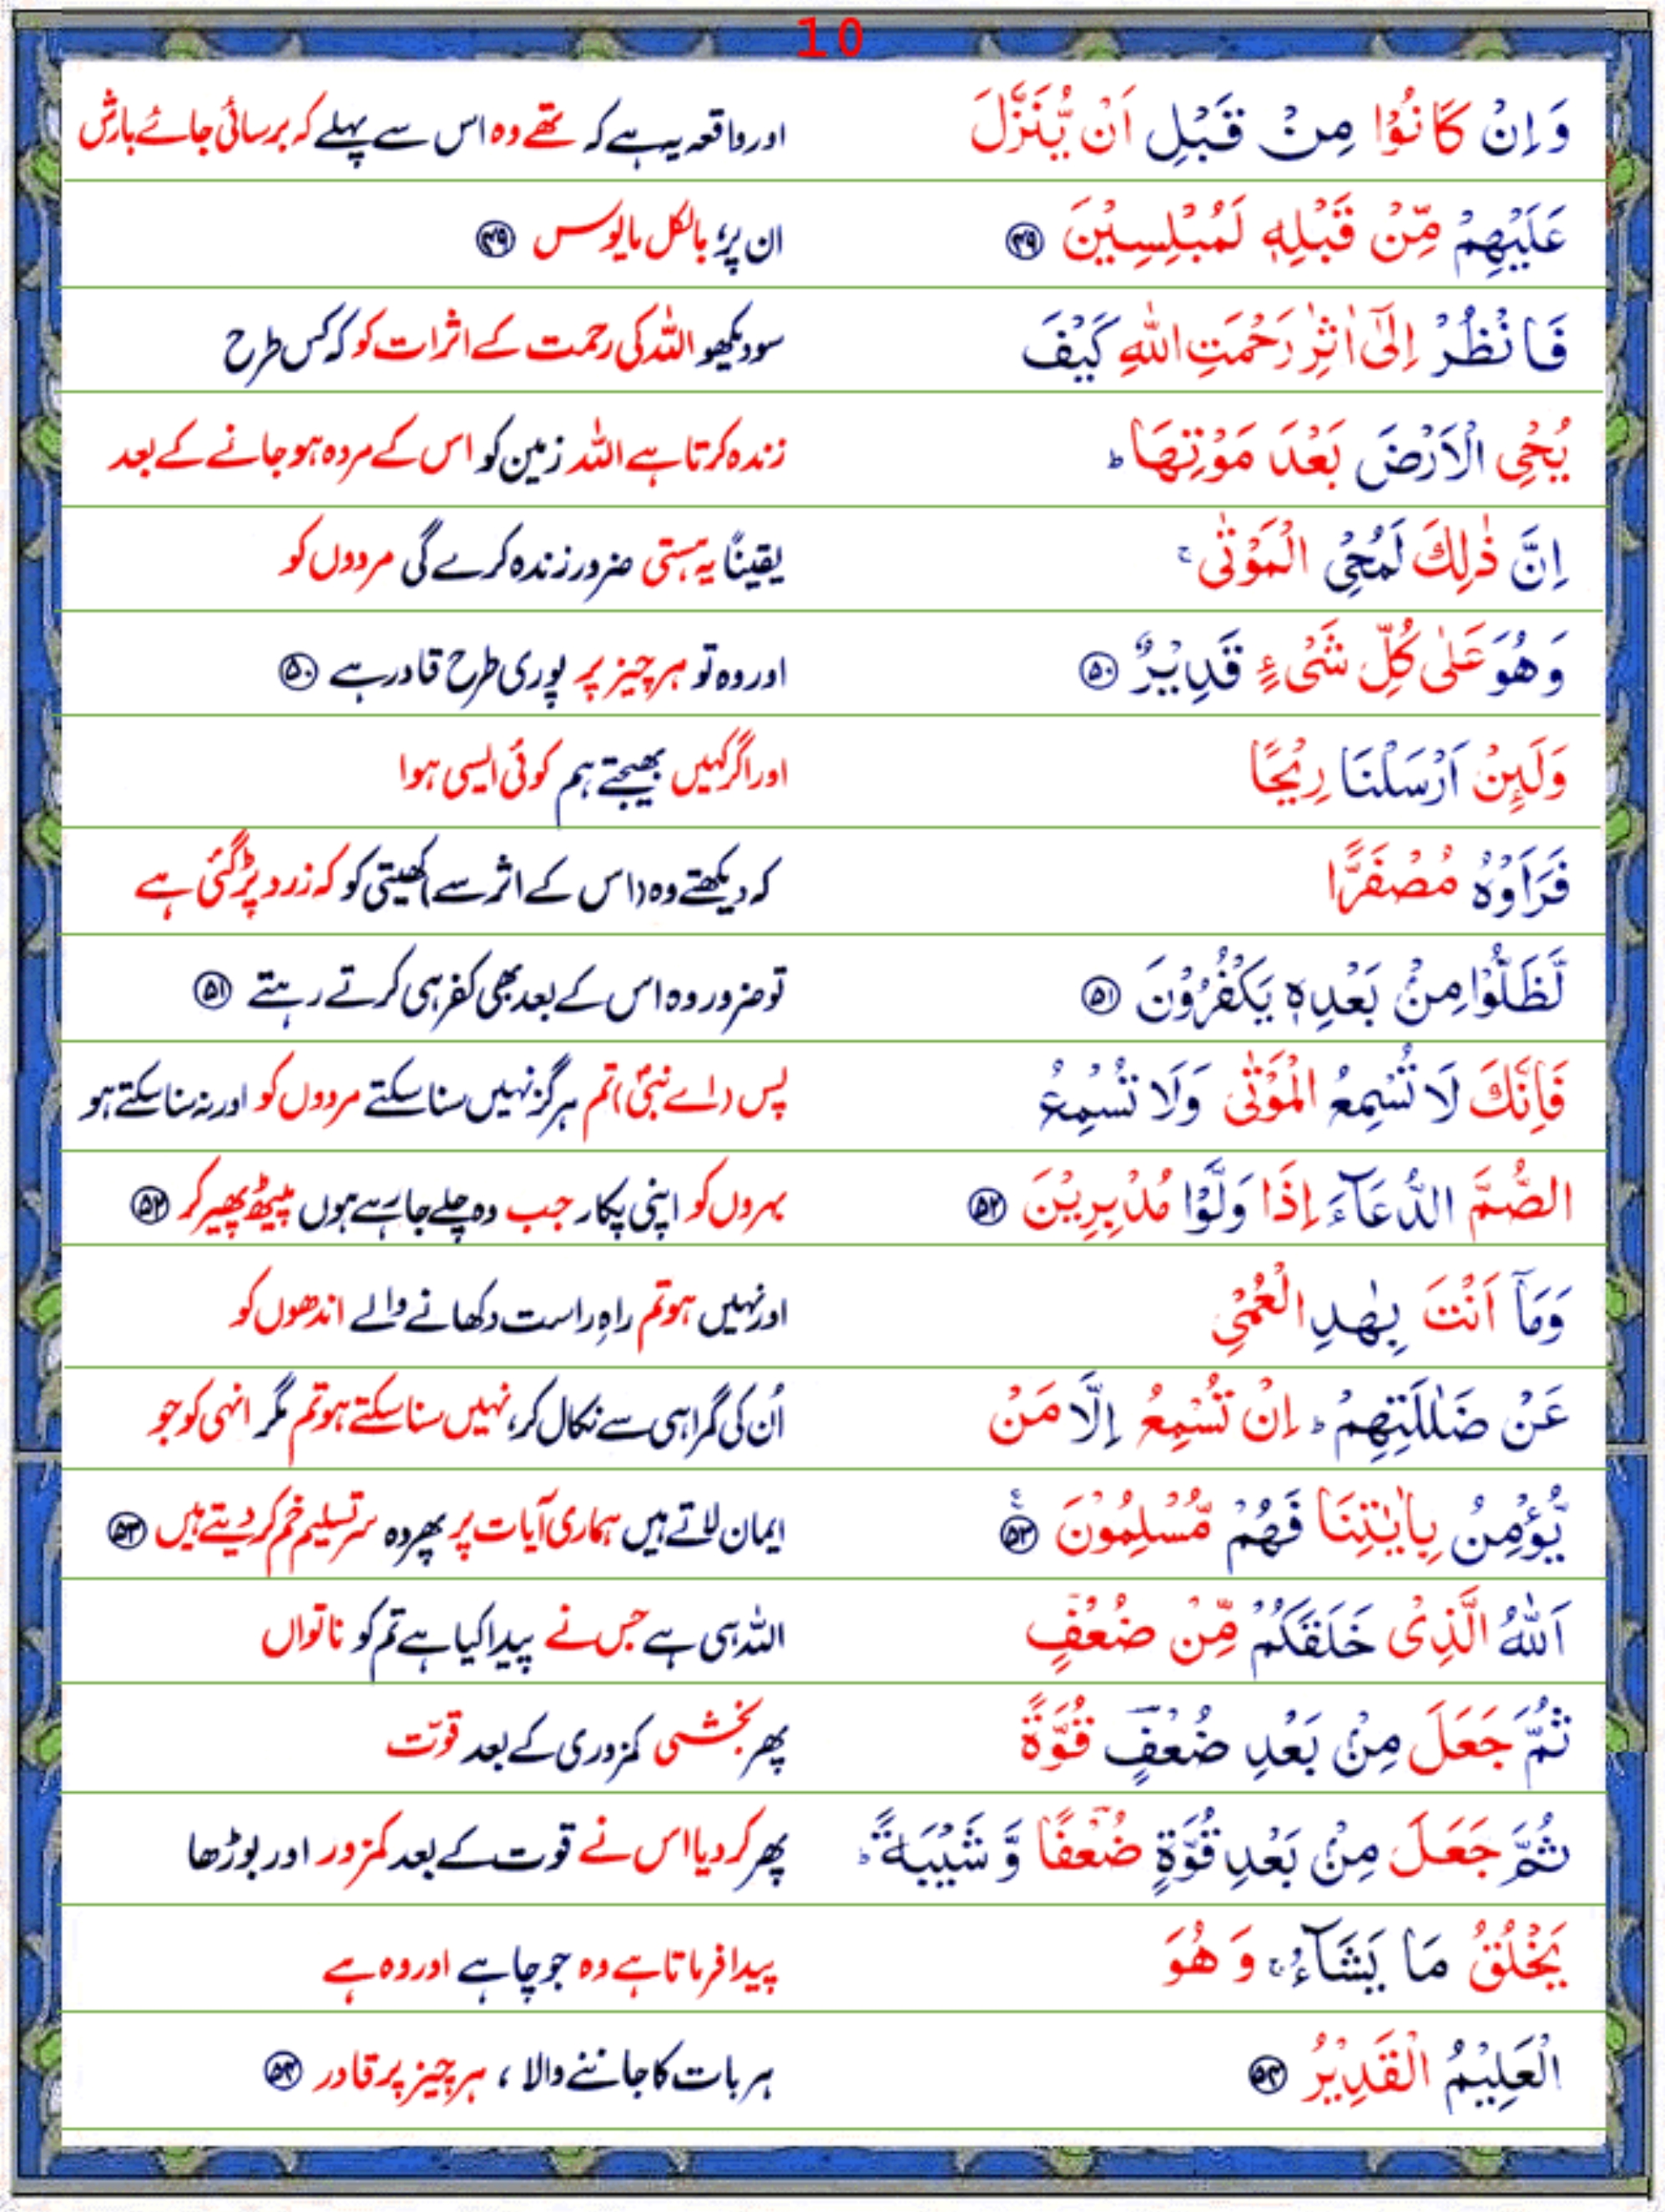 10
وَاِنْ كَانُوْا مِنْ قَبْلِ اَنْ يُّنَزَّلَ اور واقعہ یہ ہے کہ تھے وہ اس سے پہلے کہ برسائی جائے بارش
عَلَيْهِمْ مِّنْ قَبْلِهٖ لَمُبْلِسِيْنَ ۴۹ ان پر، بالکل مایوس ۴۹
فَانْظُرْ اِلٰٓى اٰثٰرِ رَحْمَتِ اللّٰهِ كَيْفَ سو دیکھو اللہ کی رحمت کے اثرات کو کہ کس طرح
يُحْىِ الْاَرْضَ بَعْدَ مَوْتِهَا ؕ زندہ کرتا ہے اللہ زمین کو اس کے مردہ ہو جانے کے بعد
اِنَّ ذٰلِكَ لَمُحْىِ الْمَوْتٰى ۚ یقیناً یہ ہستی ضرور زندہ کرے گی مردوں کو
وَهُوَ عَلٰى كُلِّ شَىْءٍ قَدِيْرٌ ۵۰ اور وہ تو ہر چیز پر پوری طرح قادر ہے ۵۰
وَلَئِنْ اَرْسَلْنَا رِيْحًا اور اگر کہیں بھیجتے ہم کوئی ایسی ہوا
فَرَاَوْهُ مُصْفَرًّا کہ دیکھتے وہ (اس کے اثر سے) کھیتی کو کہ زرد پڑ گئی ہے
لَّظَلُّوْا مِنْۢ بَعْدِهٖ يَكْفُرُوْنَ ۵۱ تو ضرور وہ اس کے بعد بھی کفر ہی کرتے رہتے ۵۱
فَاِنَّكَ لَا تُسْمِعُ الْمَوْتٰى وَلَا تُسْمِعُ پس (اے نبیؐ) تم ہرگز نہیں سنا سکتے مردوں کو اور نہ سنا سکتے ہو
الصُّمَّ الدُّعَآءَ اِذَا وَلَّوْا مُدْبِرِيْنَ ۵۲ بہروں کو اپنی پکار جب وہ چلے جا رہے ہوں پیٹھ پھیر کر ۵۲
وَمَاۤ اَنْتَ بِهٰدِ الْعُمْىِ اور نہیں ہو تم راہِ راست دکھانے والے اندھوں کو
عَنْ ضَلٰلَتِهِمْ ؕ اِنْ تُسْمِعُ اِلَّا مَنْ اُن کی گمراہی سے نکال کر، نہیں سنا سکتے ہو تم مگر انہی کو جو
يُّؤْمِنُ بِاٰيٰتِنَا فَهُمْ مُّسْلِمُوْنَ ۵۳ ایمان لاتے ہیں ہماری آیات پر پھر وہ سر تسلیم خم کر دیتے ہیں ۵۳
اَللّٰهُ الَّذِىْ خَلَقَكُمْ مِّنْ ضُعْفٍ اللہ ہی ہے جس نے پیدا کیا ہے تم کو ناتواں
ثُمَّ جَعَلَ مِنْۢ بَعْدِ ضُعْفٍ قُوَّةً پھر بخشی کمزوری کے بعد قوّت
ثُمَّ جَعَلَ مِنْۢ بَعْدِ قُوَّةٍ ضُعْفًا وَّ شَيْبَةً ؕ پھر کر دیا اس نے قوت کے بعد کمزور اور بوڑھا
يَخْلُقُ مَا يَشَآءُ ۚ وَ هُوَ پیدا فرماتا ہے وہ جو چاہے اور وہ ہے
الْعَلِيْمُ الْقَدِيْرُ ۵۴ ہر بات کا جاننے والا، ہر چیز پر قادر ۵۴